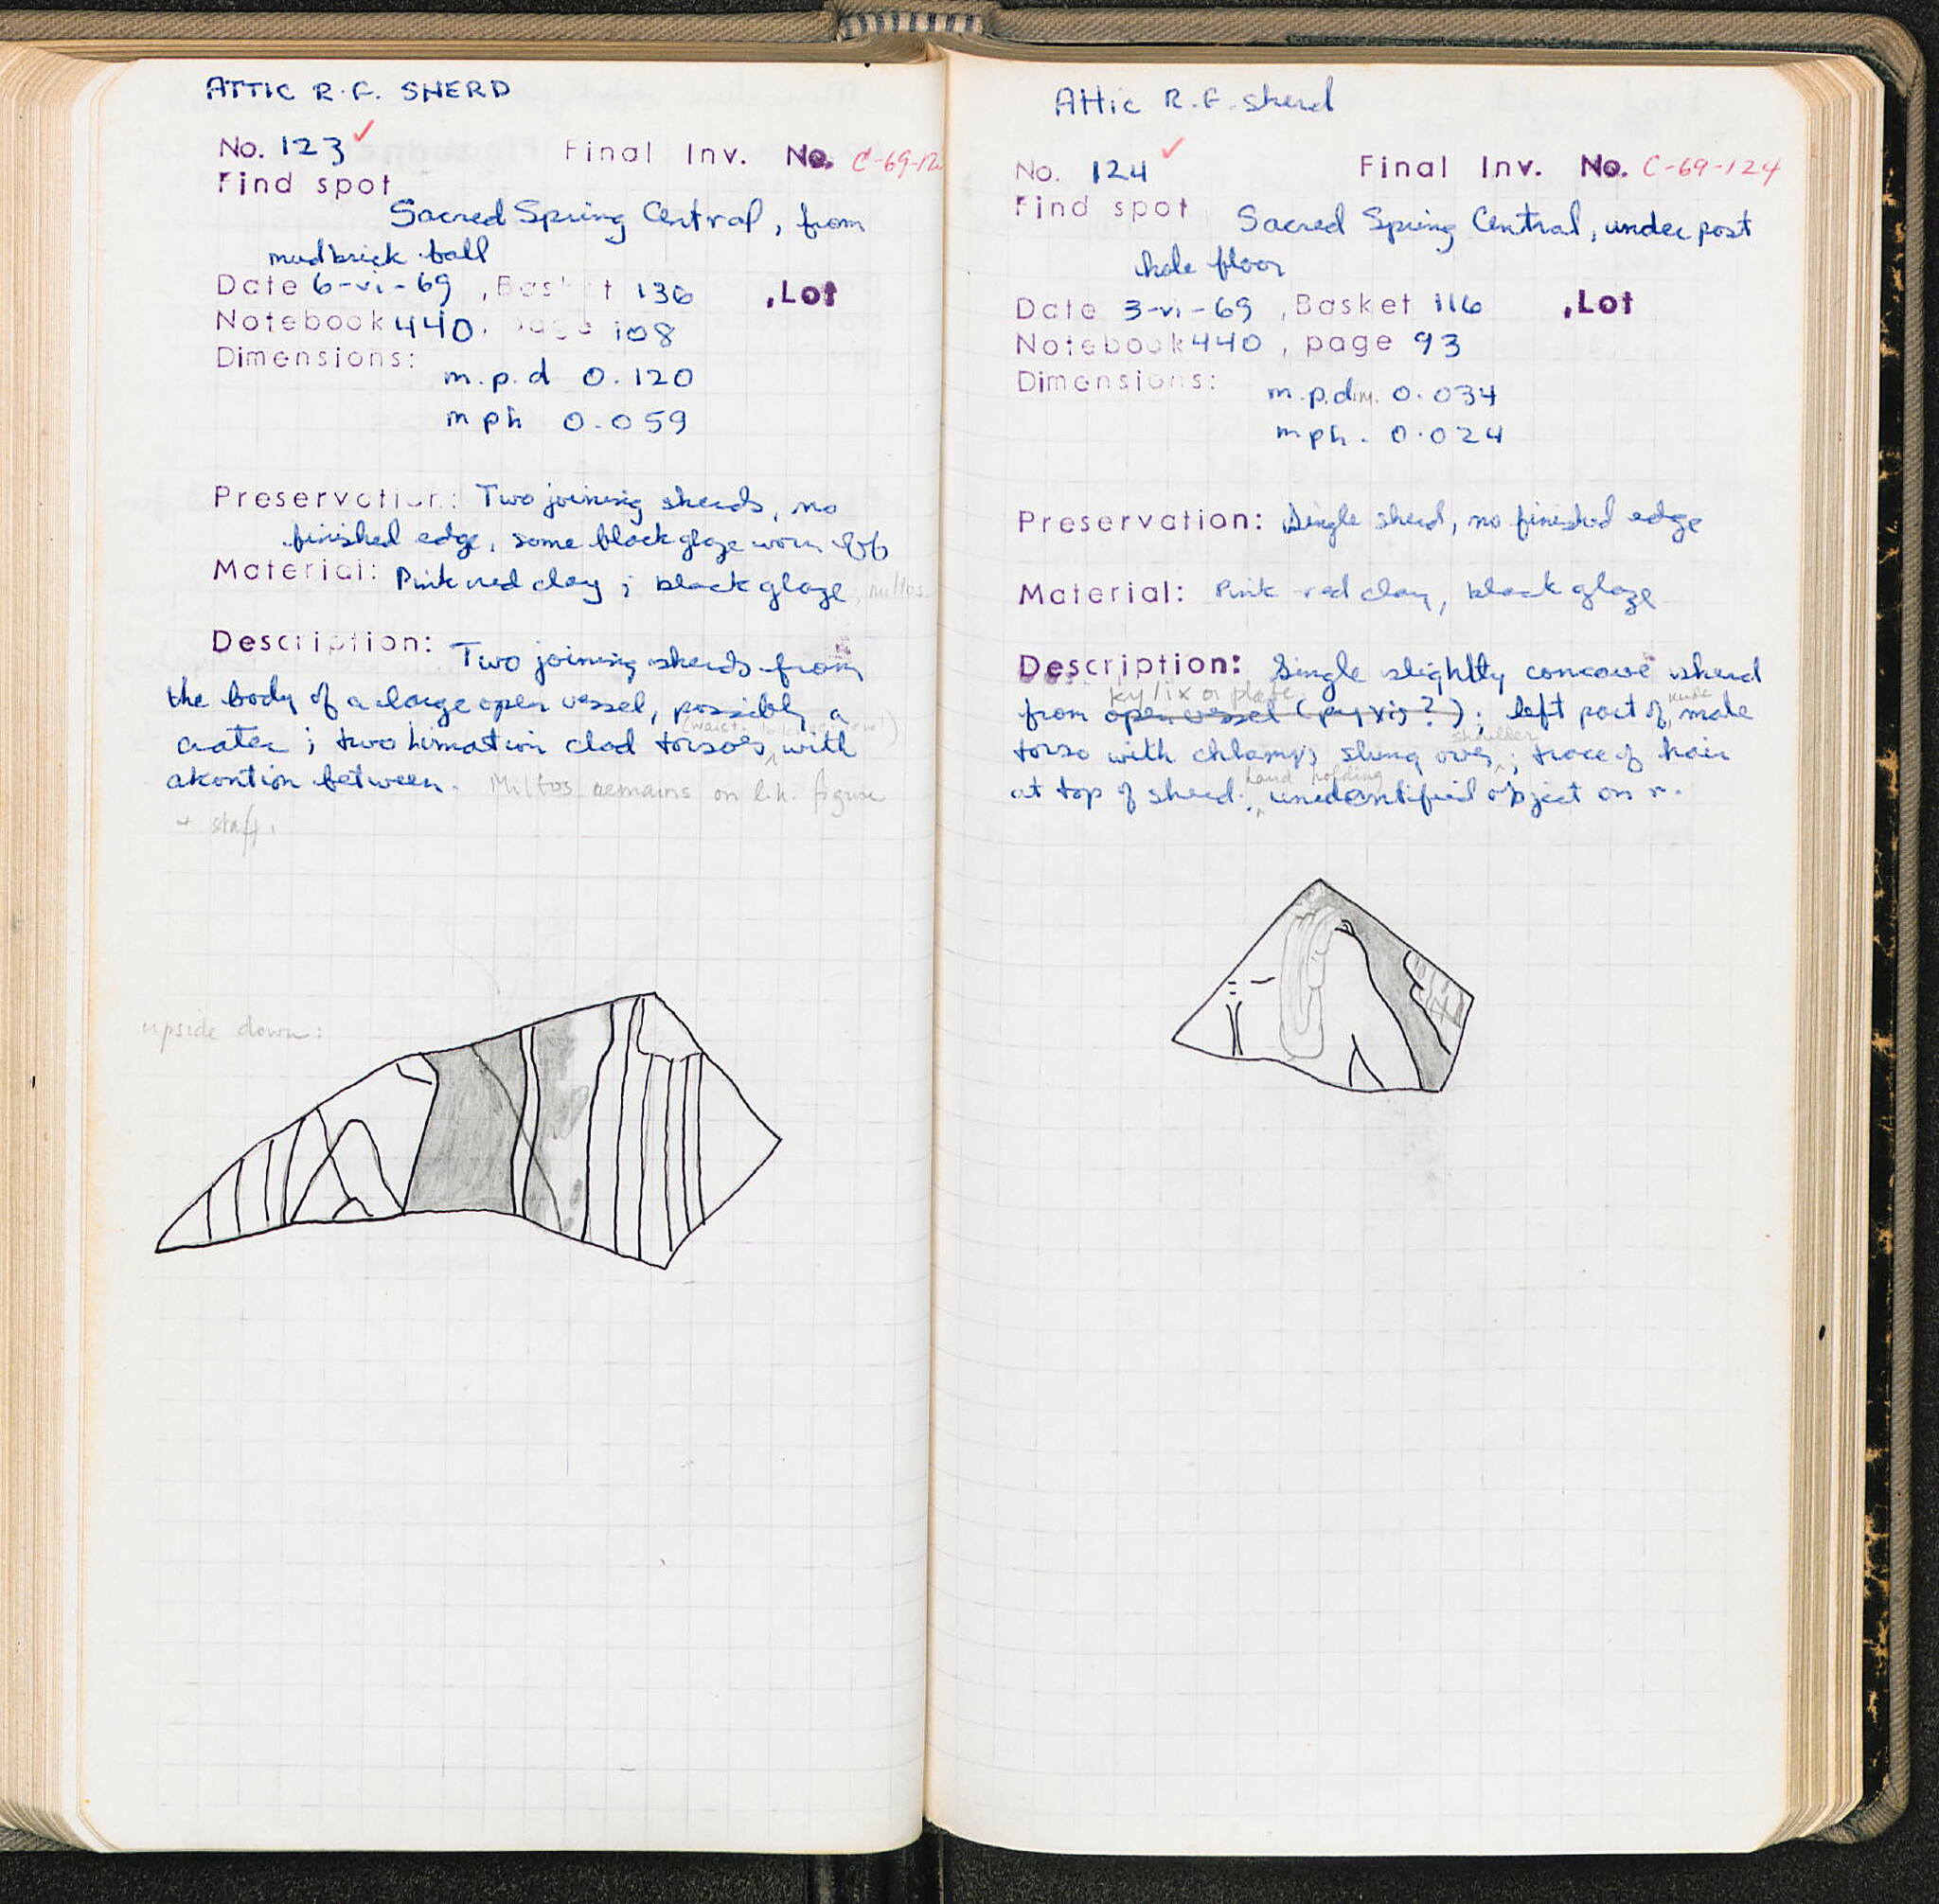 ATTIC R.F. SHERD
No. 123 ✓ Final Inv. No. C-69-12
Find spot
Sacred Spring Central, from
mudbrick ball
Date 6-vi-69, Basket 136 , Lot
Notebook 440, page 108
Dimensions:
m.p.d 0.120
mph 0.059
Preservation: Two joining sherds, no
finished edge, some black glaze worn off
Material: Pink red clay; black glaze, miltos.
Description: Two joining sherds from
the body of a large open vessel, possibly a
(waist to lower
crater; two himation clad torsoes, with
akontion between. Miltos remains on l.h. figure
+ staff.
upside down:
Attic R.F. sherd
No. 124 ✓ Final Inv. No. C-69-124
Find spot
Sacred Spring Central, under post
hole floor
Date 3-vi-69, Basket 116 , Lot
Notebook 440, page 93
Dimensions:
m.p.dim. 0.034
mph. 0.024
Preservation: Single sherd, no finished edge
Material: Pink red clay, black glaze
Description: Single slightly concave sherd
kylix or plate nude
from open vessel (pyxis?); left part of male
shoulder
torso with chlamys slung over; trace of hair
hand holding
at top of sherd; unidentified object on r.